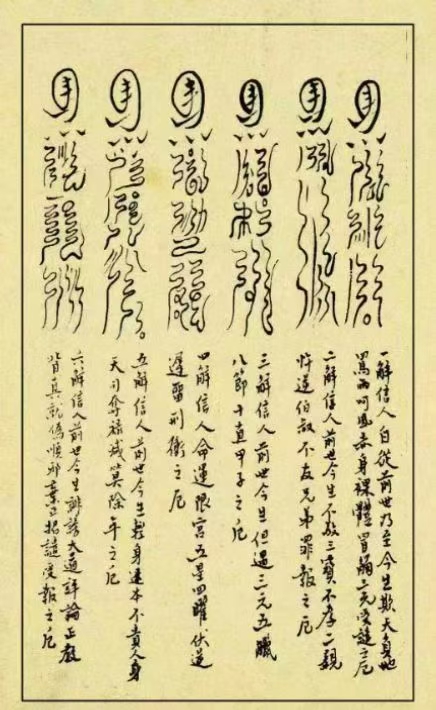 一解信人自從前世乃至今生欺天負地
罵雨呵風赤身裸體冒觸三光受譴之厄
二解信人前世今生不敬三寶不孝二親
忤逆伯叔不友兄弟罪報之厄
三解信人前世今生但遇三元五臘
八節十直甲子之厄
四解信人命運限宮五星四曜伏逆
遲留刑衝之厄
五解信人前世今生輕身違本不貴人身
天司奪祿減算除年之厄
六解信人前世今生誹謗大道評論正教
背真就偽順邪棄正招譴受報之厄